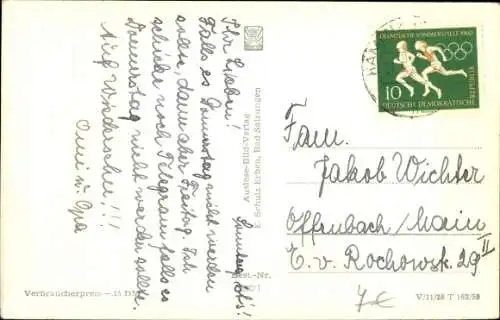 Sonntag, 26.
Ihr Lieben!
Falls es Donnerstag nicht werden
sollte, dann aber Freitag. Ich
schicke noch Telegram falls es
Donnerstag nicht werden sollte.
Auf Wiedersehen!!!
Omi u. Opa
Auslese-Bild-Verlag
E. Schulz Erben, Bad Salzungen
Best.-Nr.
Verbraucherpreis -.15 DM
OLYMPISCHE SOMMERSPIELE 1960
10
DEUTSCHE DEMOKRATISCHE
REPUBLIK
Fam.
Jakob Wichter
Offenbach/Main
E. v. Rochowstr. 29 II
7€
V/11/28 T 162/58